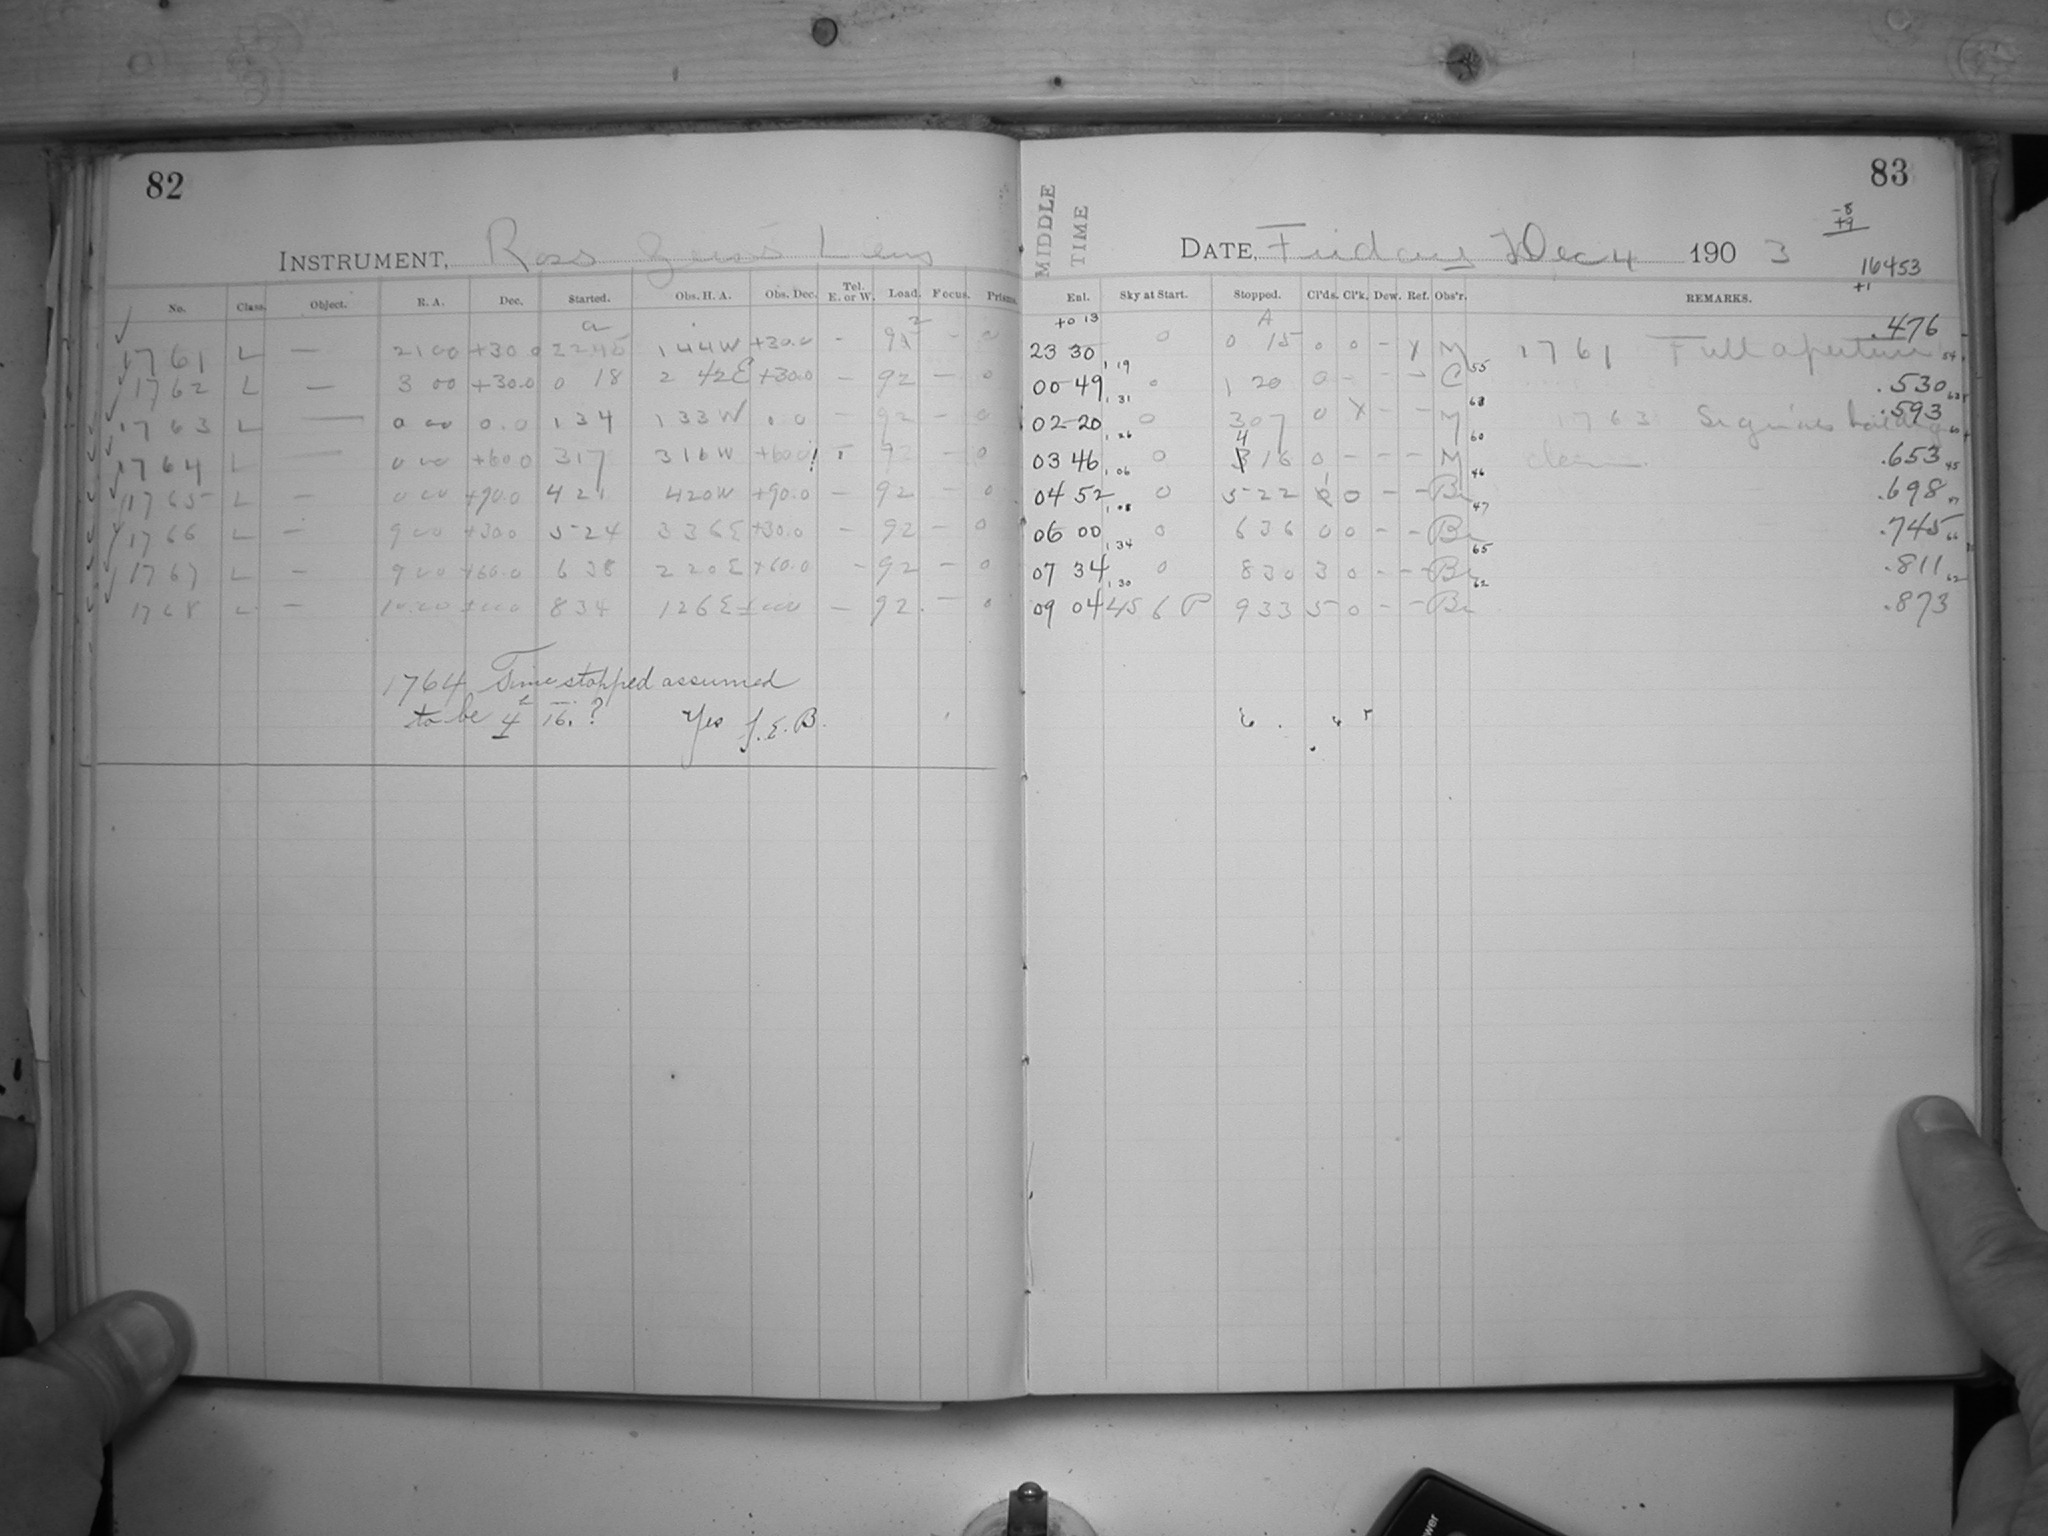 82
INSTRUMENT, Ross Zeiss Lens
No. Class. Object. R. A. Dec. Started. Obs. H. A. Obs. Dec. Tel. E. or W. Load. Focus. Prisms.
1761 L — 21 00 +30.0 22 45 1 44 W +30.0 - 92 - 0
1762 L — 3 00 +30.0 0 18 2 42 E +30.0 - 92 - 0
1763 L — 0 00 0.0 1 34 1 33 W 0.0 - 92 - 0
1764 L — 0 00 +60.0 3 17 3 16 W +60.0 - 92 - 0
1765 L — 0 00 +90.0 4 21 4 20 W +90.0 - 92 - 0
1766 L — 9 00 +30.0 5 24 3 36 E +30.0 - 92 - 0
1767 L — 9 00 +60.0 6 38 2 20 E +60.0 - 92 - 0
1768 L — 10 00 8 34 1 26 E - 92 - 0
1764 Time stopped assumed
to be 4 16. ? Yes J. E. B.
83
MIDDLE TIME
DATE, Friday Dec 4 190 3
-8
+9
16453
+1
Enl. Sky at Start. Stopped. Cl'ds. Cl'k. Dew. Ref. Obs'r. REMARKS.
+0 13
23 30 0 0 15 0 0 - Y M 1761 Full aperture .476
1 19 55
00 49 0 1 20 0 - - - C .530
1 31 63
02 20 0 3 07 0 X - - M 1763 .593
1 26 60
03 46 0 4 16 0 - - - M .653
1 06 46
04 52 0 5 22 0 - - Br .698
1 08 47
06 00 0 6 36 0 0 - - Br .745
1 34 65
07 34 0 8 30 3 0 - - Br .811
1 30 62
09 04 45 6 P 9 33 5 0 - - Br .873